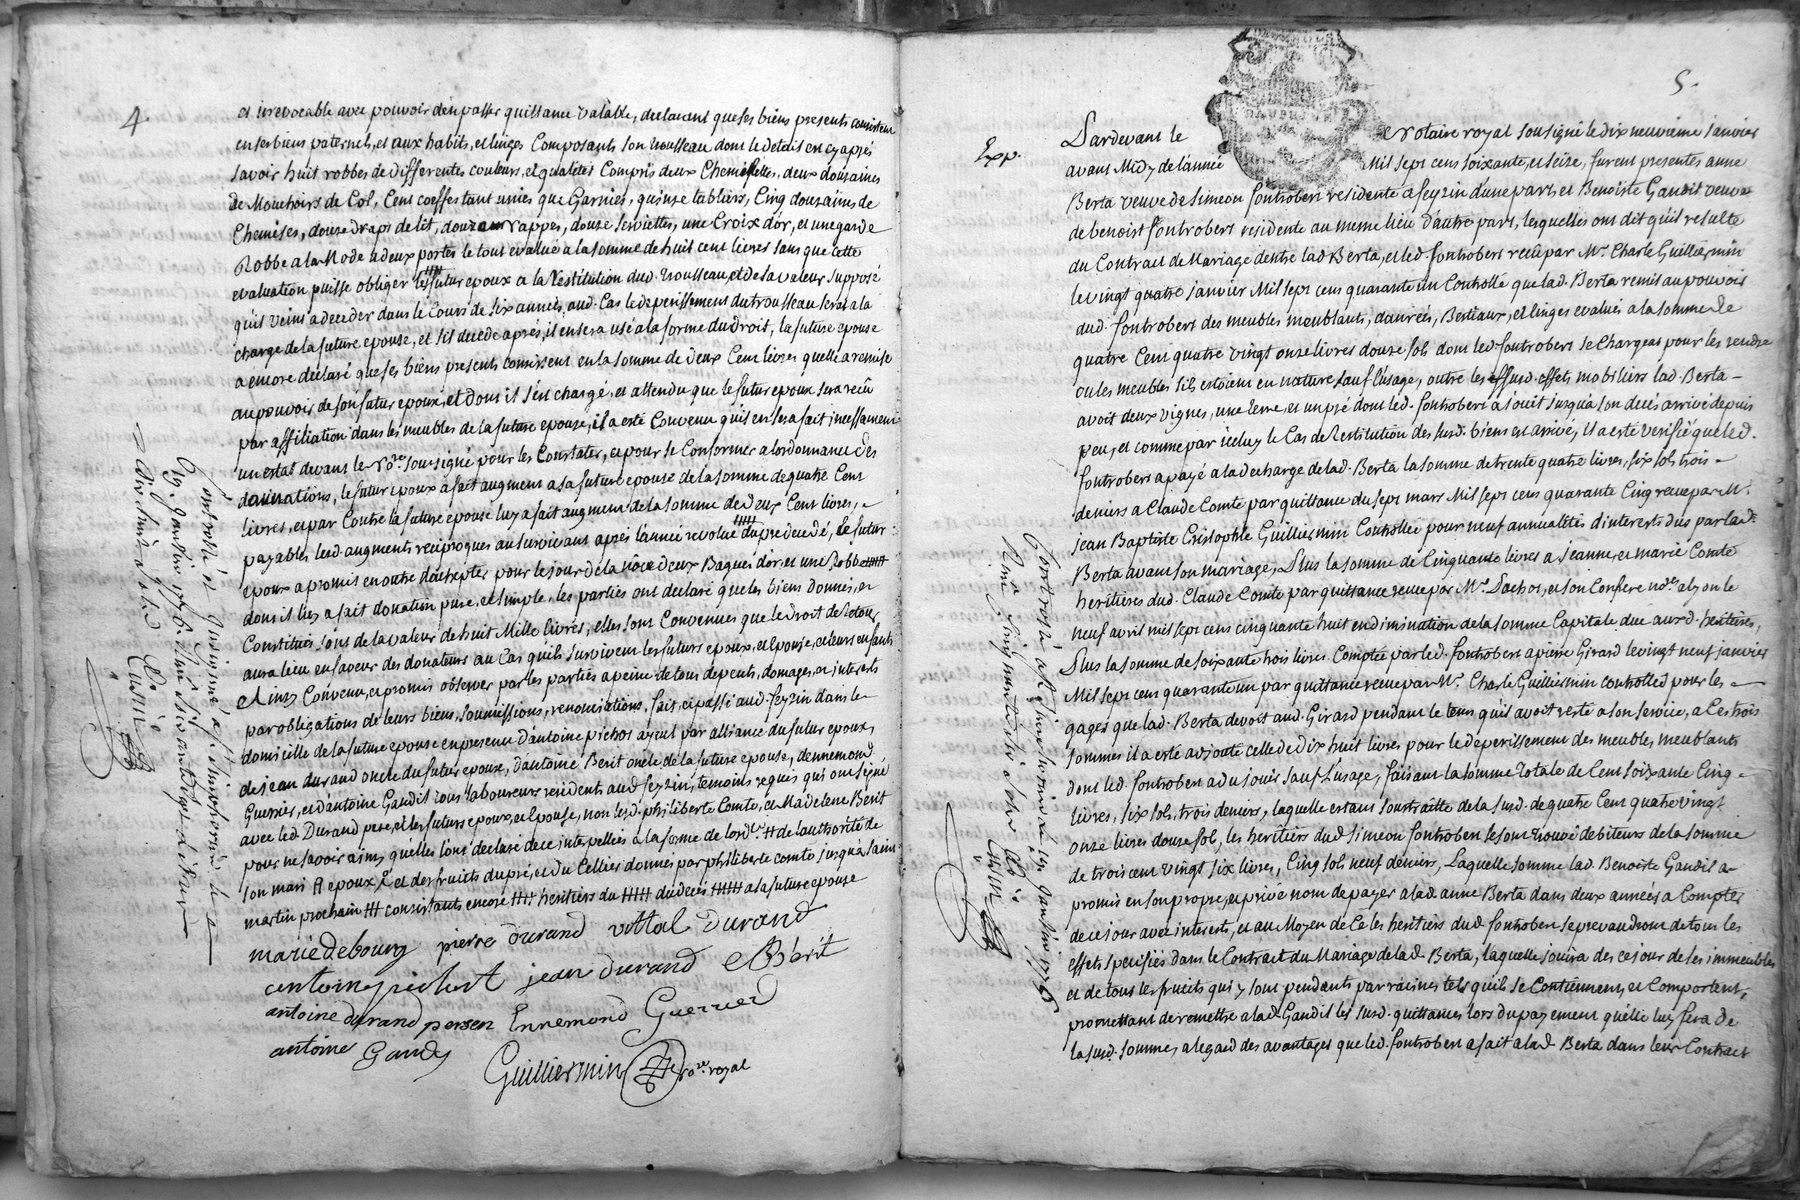 4
et irrevocable avec pouvoir d'en passer quittance valable, declarant que ses biens presents consistent
en ses biens paternels, et aux habits, et linges Composants son trousseau dont le detail en cy après
savoir huit robbes de differentes couleurs, et qualités Compris deux Chemisettes, deux douzaines
de Mouchoirs de Col, Cent coeffes tant unies que Garnies, quinze tabliers, Cinq douzaines de
Chemises, douze draps de lit, douze nappes, douze serviettes, une Croix d'or, et une garde
Robbe a la Mode a deux portes le tout evalué a la somme de huit cent livres sans que cette
evaluation puisse obliger le futur epoux a la Restitution dud. trousseau, et de sa valeur supposé
qu'il vein a deceder dans le Cours de six années, aud. Cas le deperissement du trousseau sera a la
charge de la future epouse, et s'il decede après, il en sera usé a la forme du droit, la future epouse
a encore declaré que ses biens presents consistent en la somme de deux Cent livres quelle a remise
au pouvoir de son futur epoux, et dont il s'en chargé, et attendu que le futur epoux sera recu
par affiliation dans les meubles de la future epouse, il a esté Convenu qu'il en sera fait incessament
un estat devant le No.re sousigné pour les Constater, et pour se Conformer a lordonnance des
donations, le futur epoux a fait augment a sa future epouse de la somme de quatre Cent
livres, et par Contre la future epouse luy a fait augment de la somme de deux Cent livres,
payables lesd. augments reciproques au survivant après l'année revolue du predecedé, Le futur
epoux a promis en outre d'acheptes pour le jour de la nôce deux Bagues d'or, et une Robbe
dont il luy a fait donation pure, et simple, les parties ont declaré que les biens donnés, et
Constitués sont de la valeur de huit Mille livres, elles sont Convenues que le droit de Retour
aura lieu en faveur des donateurs au Cas quils survivent les futurs epoux, et epouse, et leurs enfants
Ainsy Convenu, et promis observer par les parties a peine de tous depents, domages, et interests
par obligations de leurs biens, soumissions, renonciations, fait, et passé aud. feyzin dans le
domicille de la future epouse en presence d'antoine pichot ayeul par alliance du futur epoux,
de jean durand oncle du futur epoux, d'antoine Berit oncle de la future epouse, dennemond
Guerrier, et d'antoine Gandil tous laboureurs residents aud. feyzin, temoins requis qui ont signé
avec led. Durand pere, et les futurs epoux, et epouse, non lesd. philiberte Comte, et Madelene Berit
pour ne savoir ainsy quelles l'ont declaré de ce interpellés a la forme de lord.ce # de l'authorité de
son mari # epoux # et des fruits du pré, et du Cellier donnés par philiberte comte jusqu'a saint
martin prochain # consistants encore # heritiers du # du deces # a la future epouse
marie debourg pierre durand vital durand
antoine pichot jean durand A Bérit
antoine durand Ennemond Guerrier
antoine Gandy
Guilliermin no.re royal
5.
Exp.
Pardevant le Notaire royal sousigné le dix neuvieme janvier
avant Midy de l'année Mil sept cens soixante, et seize, furent presentes anne
Berta veuve de Simeon fontrobert residente a feyzin d'une part, et Benoiste Gandit veuve
de benoist fontrobert residente au meme lieu d'autre part, lesquelles ont dit qu'il resulte
du Contract de Mariage dentre lad. Berta, et led. fontrobert recu par M.e Charle Guilliermin
le vingt quatre janvier Mil sept cens quarante un Controllé que lad. Berta remit au pouvoir
dud. fontrobert des meubles meublants, danrées, Bestiaux, et linges evalués a la somme de
quatre Cent quatre vingt onze livres douze sols dont led. fontrobert se Chargeat pour les rendre
ou les meubles s'ils estoient en nature sauf l'usage, outre les susd. effets mobiliers lad. Berta
avoit deux vignes, une terre, et un pré dont led. fontrobert a jouit jusqu'a son decés arrivé depuis
peu, et comme par icelluy le Cas de Restitution des susd. biens est arrivé, il a esté verifié que led.
fontrobert a payé a la decharge de lad. Berta la somme de trente quatre livres, six sols trois
deniers a Claude Comte par quittance du sept mars Mil sept cens quarante Cinq receue par M.e
jean Baptiste Cristophle Guilliermin Controllée pour neuf annualités d'interests dus par lad.
Berta avant son mariage, Plus la somme de Cinquante livres a jeanne, et marie Comte
heritieres dud. Claude Comte par quittance receue par M.e Pachot, et son Confrere no.re a lyon le
neuf avril mil sept cens cinquante huit en diminution de la somme Capitale due auxd. heritieres,
Plus la somme de soixante trois livres Comptée par led. fontrobert a pierre Girard le vingt neuf janvier
Mil sept cens quarante un par quittance receue par M.e Charle Guilliermin controlled pour les
gages que lad. Berta devoit aud. Girard pendant le tems quil avoit resté a son service, a Ces trois
sommes il a esté adjouté celle de dix huit livres pour le deperissement des meubles meublants
dont led. fontrobert a du jouir sauf l'usage, faisant la somme totale de Cent soixante Cinq
livres, six sols, trois deniers, laquelle estant soustraitte de la susd. de quatre Cent quatre vingt
onze livres douze sol, les heritiers dud. simeon fontrobert se sont trouvé debiteurs de la somme
de trois cent vingt six livres, Cinq sols neuf deniers, Laquelle somme lad. Benoiste Gandil a
promis en son propre, et privé nom de payer a lad. anne Berta dans deux années a Compter
de ce jour avec interests, et au Moyen de Ce les heritiers dud. fontrobert se prevaudront de tous les
effets specifiés dans le Contract du Mariage de lad. Berta, laquelle jouira des ce jour de ses immeubles
et de tous les fruits qui y sont pendants par racines tels quils se Contiennent, et Comportent,
promettant de remettre a lad. Gandil les susd. quittances lors du payement quelle luy fera de
la susd. somme, a legard des avantages que led. fontrobert a fait a lad. Berta dans leur Contract